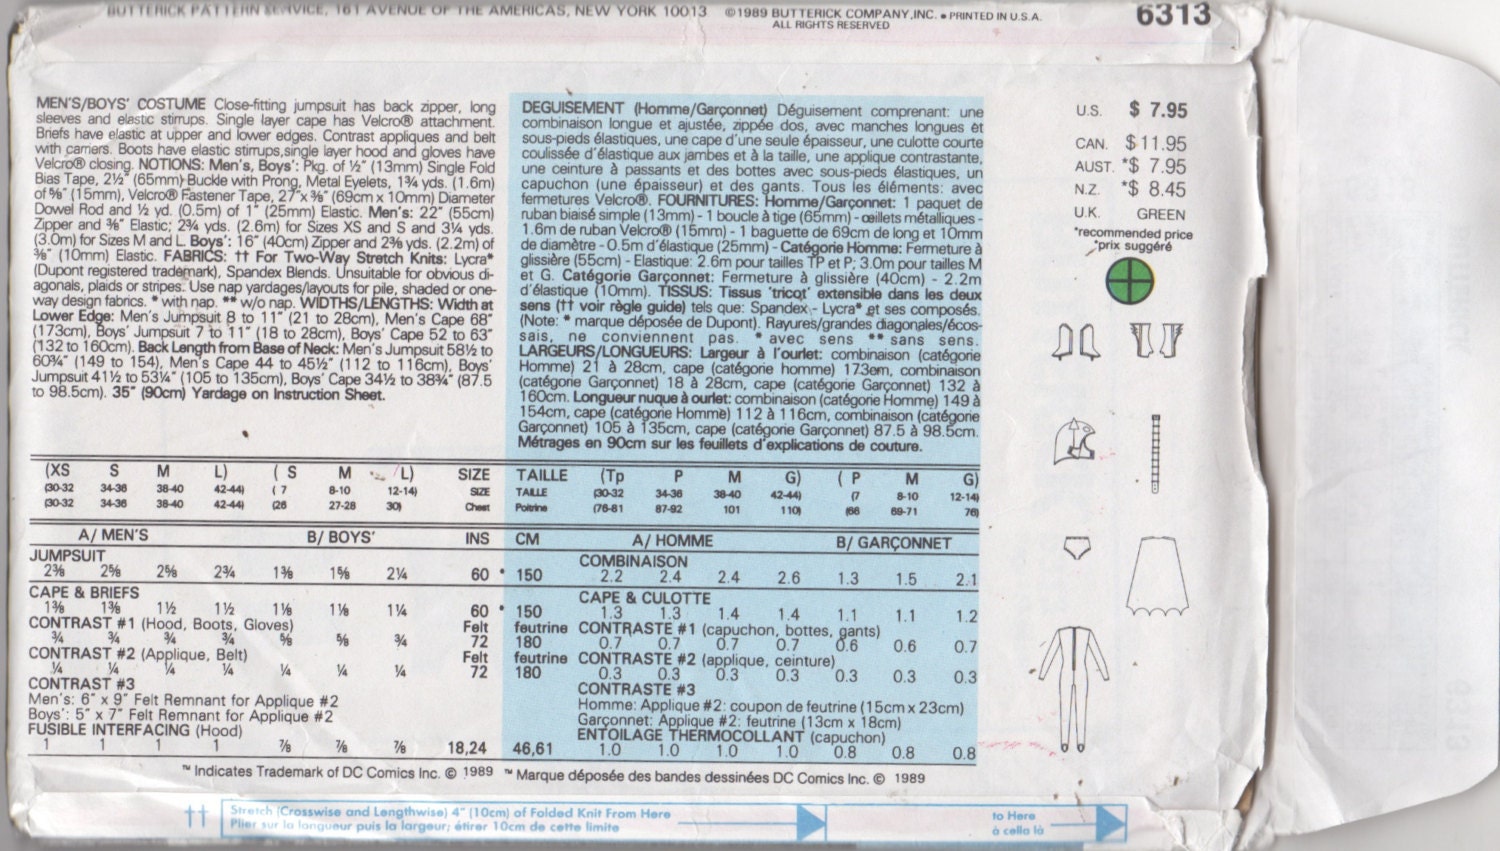 BUTTERICK PATTERN SERVICE, 161 AVENUE OF THE AMERICAS, NEW YORK 10013 ©1989 BUTTERICK COMPANY, INC. • PRINTED IN U.S.A.
ALL RIGHTS RESERVED
6313
MEN'S/BOYS' COSTUME Close-fitting jumpsuit has back zipper, long
sleeves and elastic stirrups. Single layer cape has Velcro® attachment.
Briefs have elastic at upper and lower edges. Contrast appliques and belt
with carriers. Boots have elastic stirrups,single layer hood and gloves have
Velcro® closing. NOTIONS: Men's, Boys': Pkg. of ½" (13mm) Single Fold
Bias Tape, 2½" (65mm) Buckle with Prong, Metal Eyelets, 1¾ yds. (1.6m)
of ⅝" (15mm), Velcro® Fastener Tape, 27"x ⅜" (69cm x 10mm) Diameter
Dowel Rod and ½ yd. (0.5m) of 1" (25mm) Elastic. Men's: 22" (55cm)
Zipper and ⅜" Elastic; 2¾ yds. (2.6m) for Sizes XS and S and 3¼ yds.
(3.0m) for Sizes M and L. Boys': 16" (40cm) Zipper and 2⅜ yds. (2.2m) of
⅜" (10mm) Elastic. FABRICS: †† For Two-Way Stretch Knits: Lycra*
(Dupont registered trademark), Spandex Blends. Unsuitable for obvious di-
agonals, plaids or stripes. Use nap yardages/layouts for pile, shaded or one-
way design fabrics. * with nap. ** w/o nap. WIDTHS/LENGTHS: Width at
Lower Edge: Men's Jumpsuit 8 to 11" (21 to 28cm), Men's Cape 68"
(173cm), Boys' Jumpsuit 7 to 11" (18 to 28cm), Boys' Cape 52 to 63"
(132 to 160cm). Back Length from Base of Neck: Men's Jumpsuit 58½ to
60¾" (149 to 154), Men's Cape 44 to 45½" (112 to 116cm), Boys'
Jumpsuit 41½ to 53¼" (105 to 135cm), Boys' Cape 34½ to 38¾" (87.5
to 98.5cm). 35" (90cm) Yardage on Instruction Sheet.
DEGUISEMENT (Homme/Garçonnet) Déguisement comprenant: une
combinaison longue et ajustée, zippée dos, avec manches longues et
sous-pieds élastiques, une cape d'une seule épaisseur, une culotte courte
coulissée d'élastique aux jambes et à la taille, une applique contrastante,
une ceinture à passants et des bottes avec sous-pieds élastiques, un
capuchon (une épaisseur) et des gants. Tous les éléments: avec
fermetures Velcro®. FOURNITURES: Homme/Garçonnet: 1 paquet de
ruban biaisé simple (13mm) - 1 boucle à tige (65mm) - œillets métalliques -
1.6m de ruban Velcro® (15mm) - 1 baguette de 69cm de long et 10mm
de diamètre - 0.5m d'élastique (25mm) - Catégorie Homme: Fermeture à
glissière (55cm) - Elastique: 2.6m pour tailles TP et P; 3.0m pour tailles M
et G. Catégorie Garçonnet: Fermeture à glissière (40cm) - 2.2m
d'élastique (10mm). TISSUS: Tissus 'tricot' extensible dans les deux
sens (†† voir règle guide) tels que: Spandex - Lycra* et ses composés.
(Note: * marque déposée de Dupont). Rayures/grandes diagonales/écos-
sais, ne conviennent pas. * avec sens ** sans sens.
LARGEURS/LONGUEURS: Largeur à l'ourlet: combinaison (catégorie
Homme) 21 à 28cm, cape (catégorie homme) 173cm, combinaison
(catégorie Garçonnet) 18 à 28cm, cape (catégorie Garçonnet) 132 à
160cm. Longueur nuque à ourlet: combinaison (catégorie Homme) 149 à
154cm, cape (catégorie Homme) 112 à 116cm, combinaison (catégorie
Garçonnet) 105 à 135cm, cape (catégorie Garçonnet) 87.5 à 98.5cm.
Métrages en 90cm sur les feuillets d'explications de couture.
U.S. $ 7.95
CAN. $ 11.95
AUST. *$ 7.95
N.Z. *$ 8.45
U.K. GREEN
*recommended price
*prix suggéré
(XS S M L) ( S M L) SIZE TAILLE (Tp P M G) ( P M G)
(30-32 34-36 38-40 42-44) ( 7 8-10 12-14) SIZE TAILLE (30-32 34-36 38-40 42-44) (7 8-10 12-14)
(30-32 34-36 38-40 42-44) (26 27-28 30) Chest Poitrine (76-81 87-92 101 110) (66 69-71 76)
A/ MEN'S B/ BOYS' INS CM A/ HOMME B/ GARÇONNET
JUMPSUIT COMBINAISON
2⅜ 2⅝ 2⅝ 2¾ 1⅜ 1⅝ 2¼ 60 * 150 2.2 2.4 2.4 2.6 1.3 1.5 2.1
CAPE & BRIEFS CAPE & CULOTTE
1⅜ 1⅜ 1½ 1½ 1⅛ 1⅛ 1¼ 60 * 150 1.3 1.3 1.4 1.4 1.1 1.1 1.2
CONTRAST #1 (Hood, Boots, Gloves) Felt feutrine CONTRASTE #1 (capuchon, bottes, gants)
¾ ¾ ¾ ¾ ⅝ ⅝ ¾ 72 180 0.7 0.7 0.7 0.7 0.6 0.6 0.7
CONTRAST #2 (Applique, Belt) Felt feutrine CONTRASTE #2 (applique, ceinture)
¼ ¼ ¼ ¼ ¼ ¼ ¼ 72 180 0.3 0.3 0.3 0.3 0.3 0.3 0.3
CONTRAST #3 CONTRASTE #3
Men's: 6" x 9" Felt Remnant for Applique #2 Homme: Applique #2: coupon de feutrine (15cm x 23cm)
Boys': 5" x 7" Felt Remnant for Applique #2 Garçonnet: Applique #2: feutrine (13cm x 18cm)
FUSIBLE INTERFACING (Hood) ENTOILAGE THERMOCOLLANT (capuchon)
1 1 1 1 ⅞ ⅞ ⅞ 18,24 46,61 1.0 1.0 1.0 1.0 0.8 0.8 0.8
™ Indicates Trademark of DC Comics Inc. © 1989 ™ Marque déposée des bandes dessinées DC Comics Inc. © 1989
†† Stretch (Crosswise and Lengthwise) 4" (10cm) of Folded Knit From Here to Here
Plier sur la longueur puis la largeur; étirer 10cm de cette limite à celle là